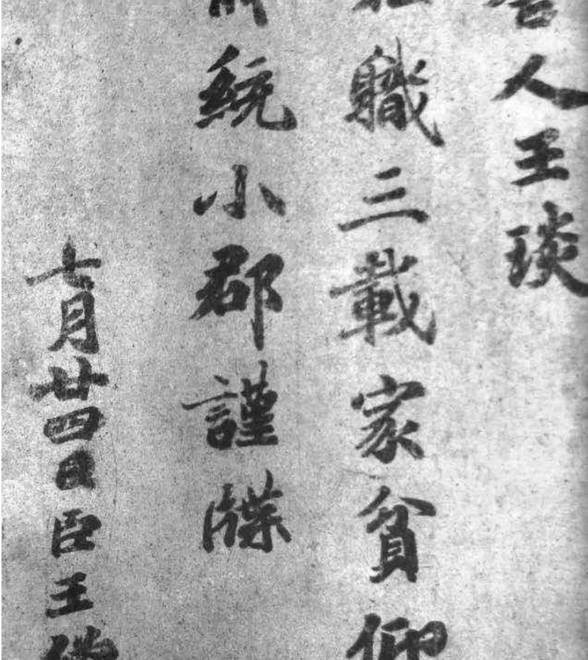 人王琰
職三載家貧仰
統小郡謹牒
七月廿四日臣王